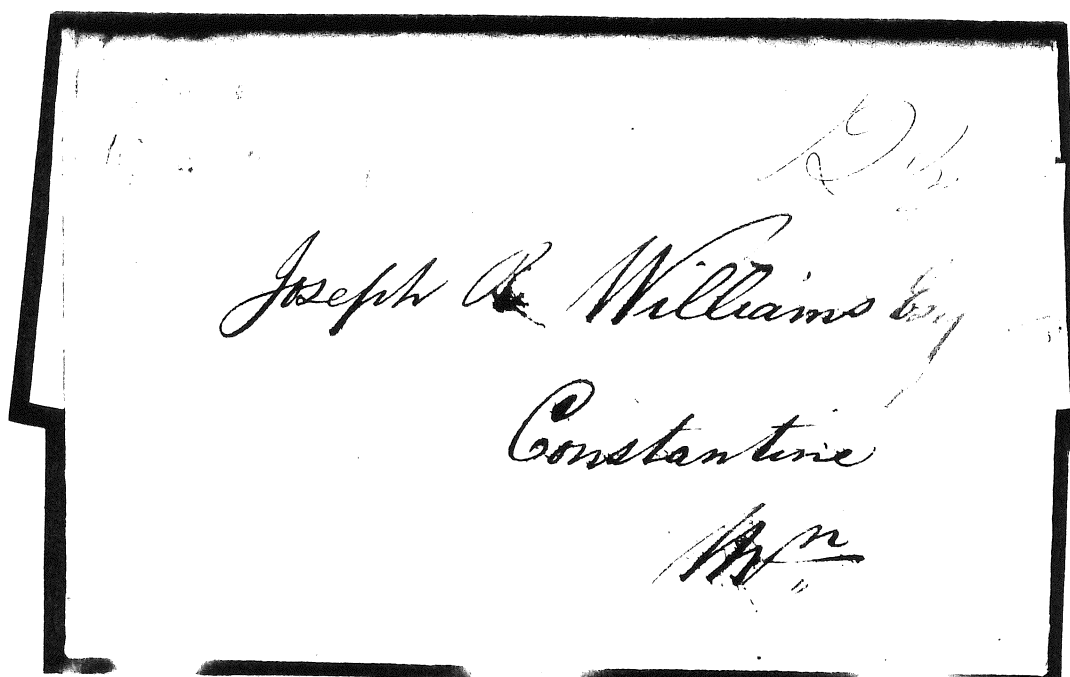 Joseph R Williams Esq
Constantine
Mn